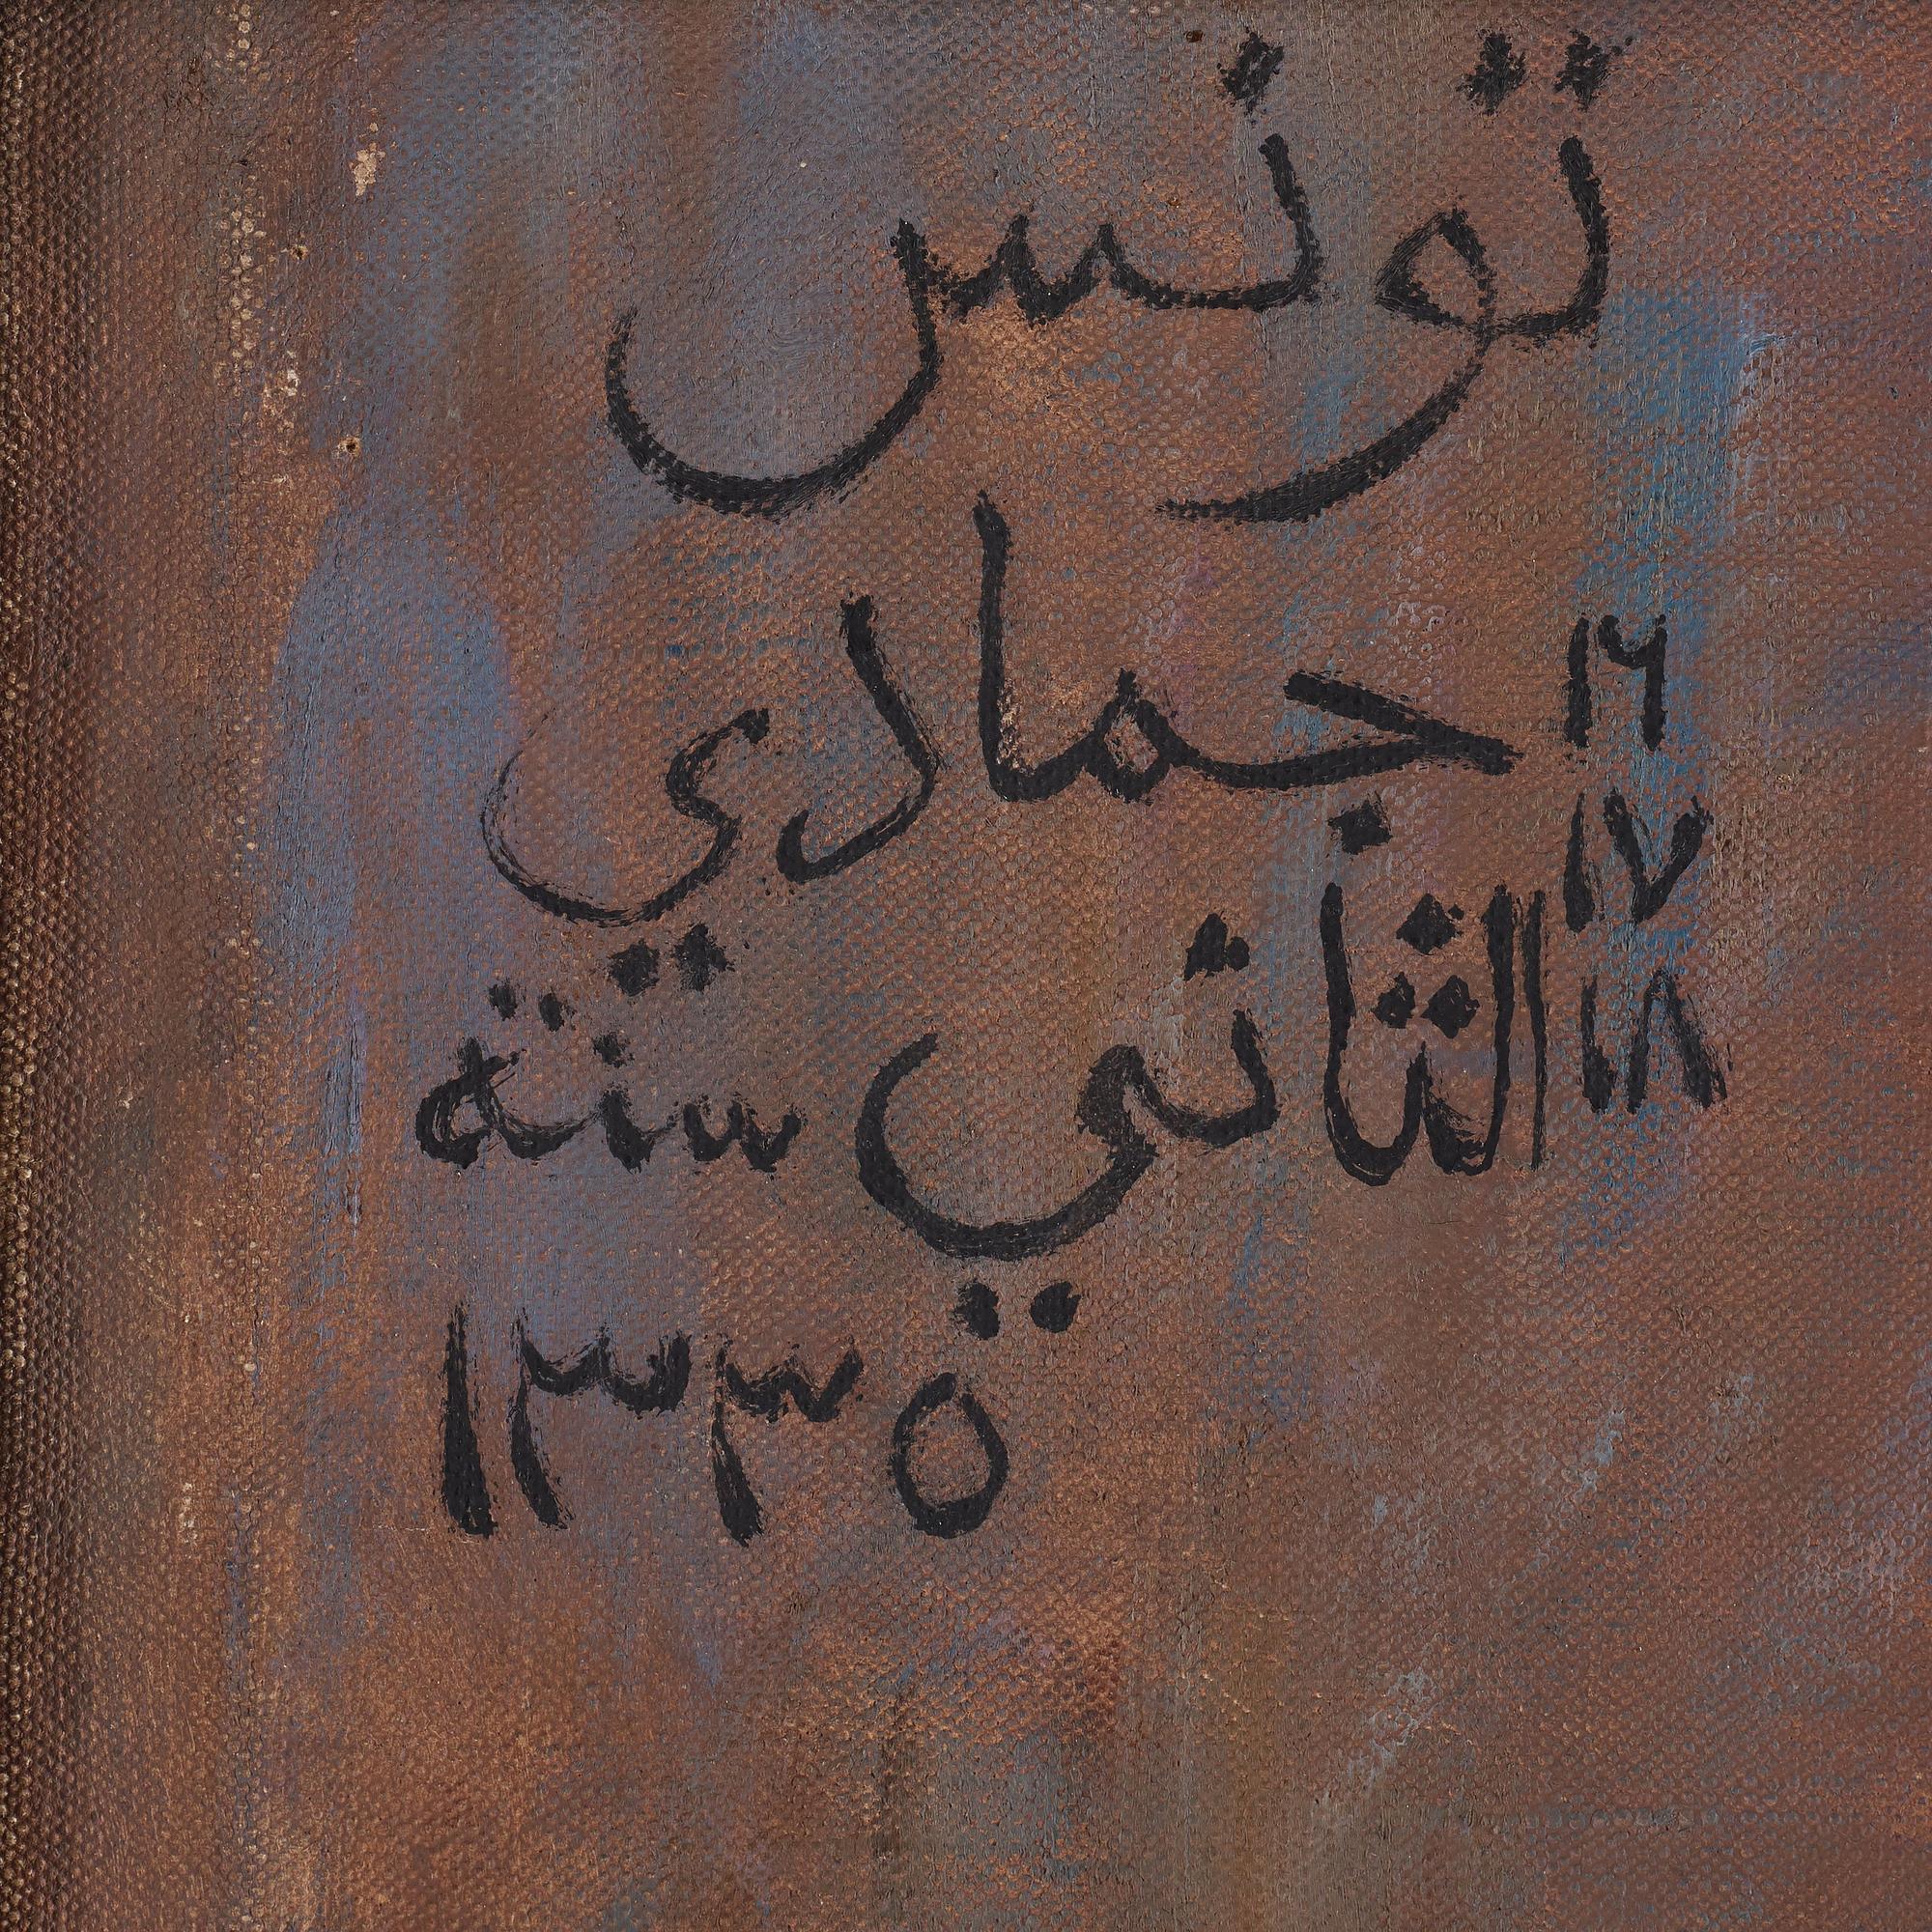 تونس
١٦ جمادي
١٧
١٨ الثاني سنة
١٣٣٥